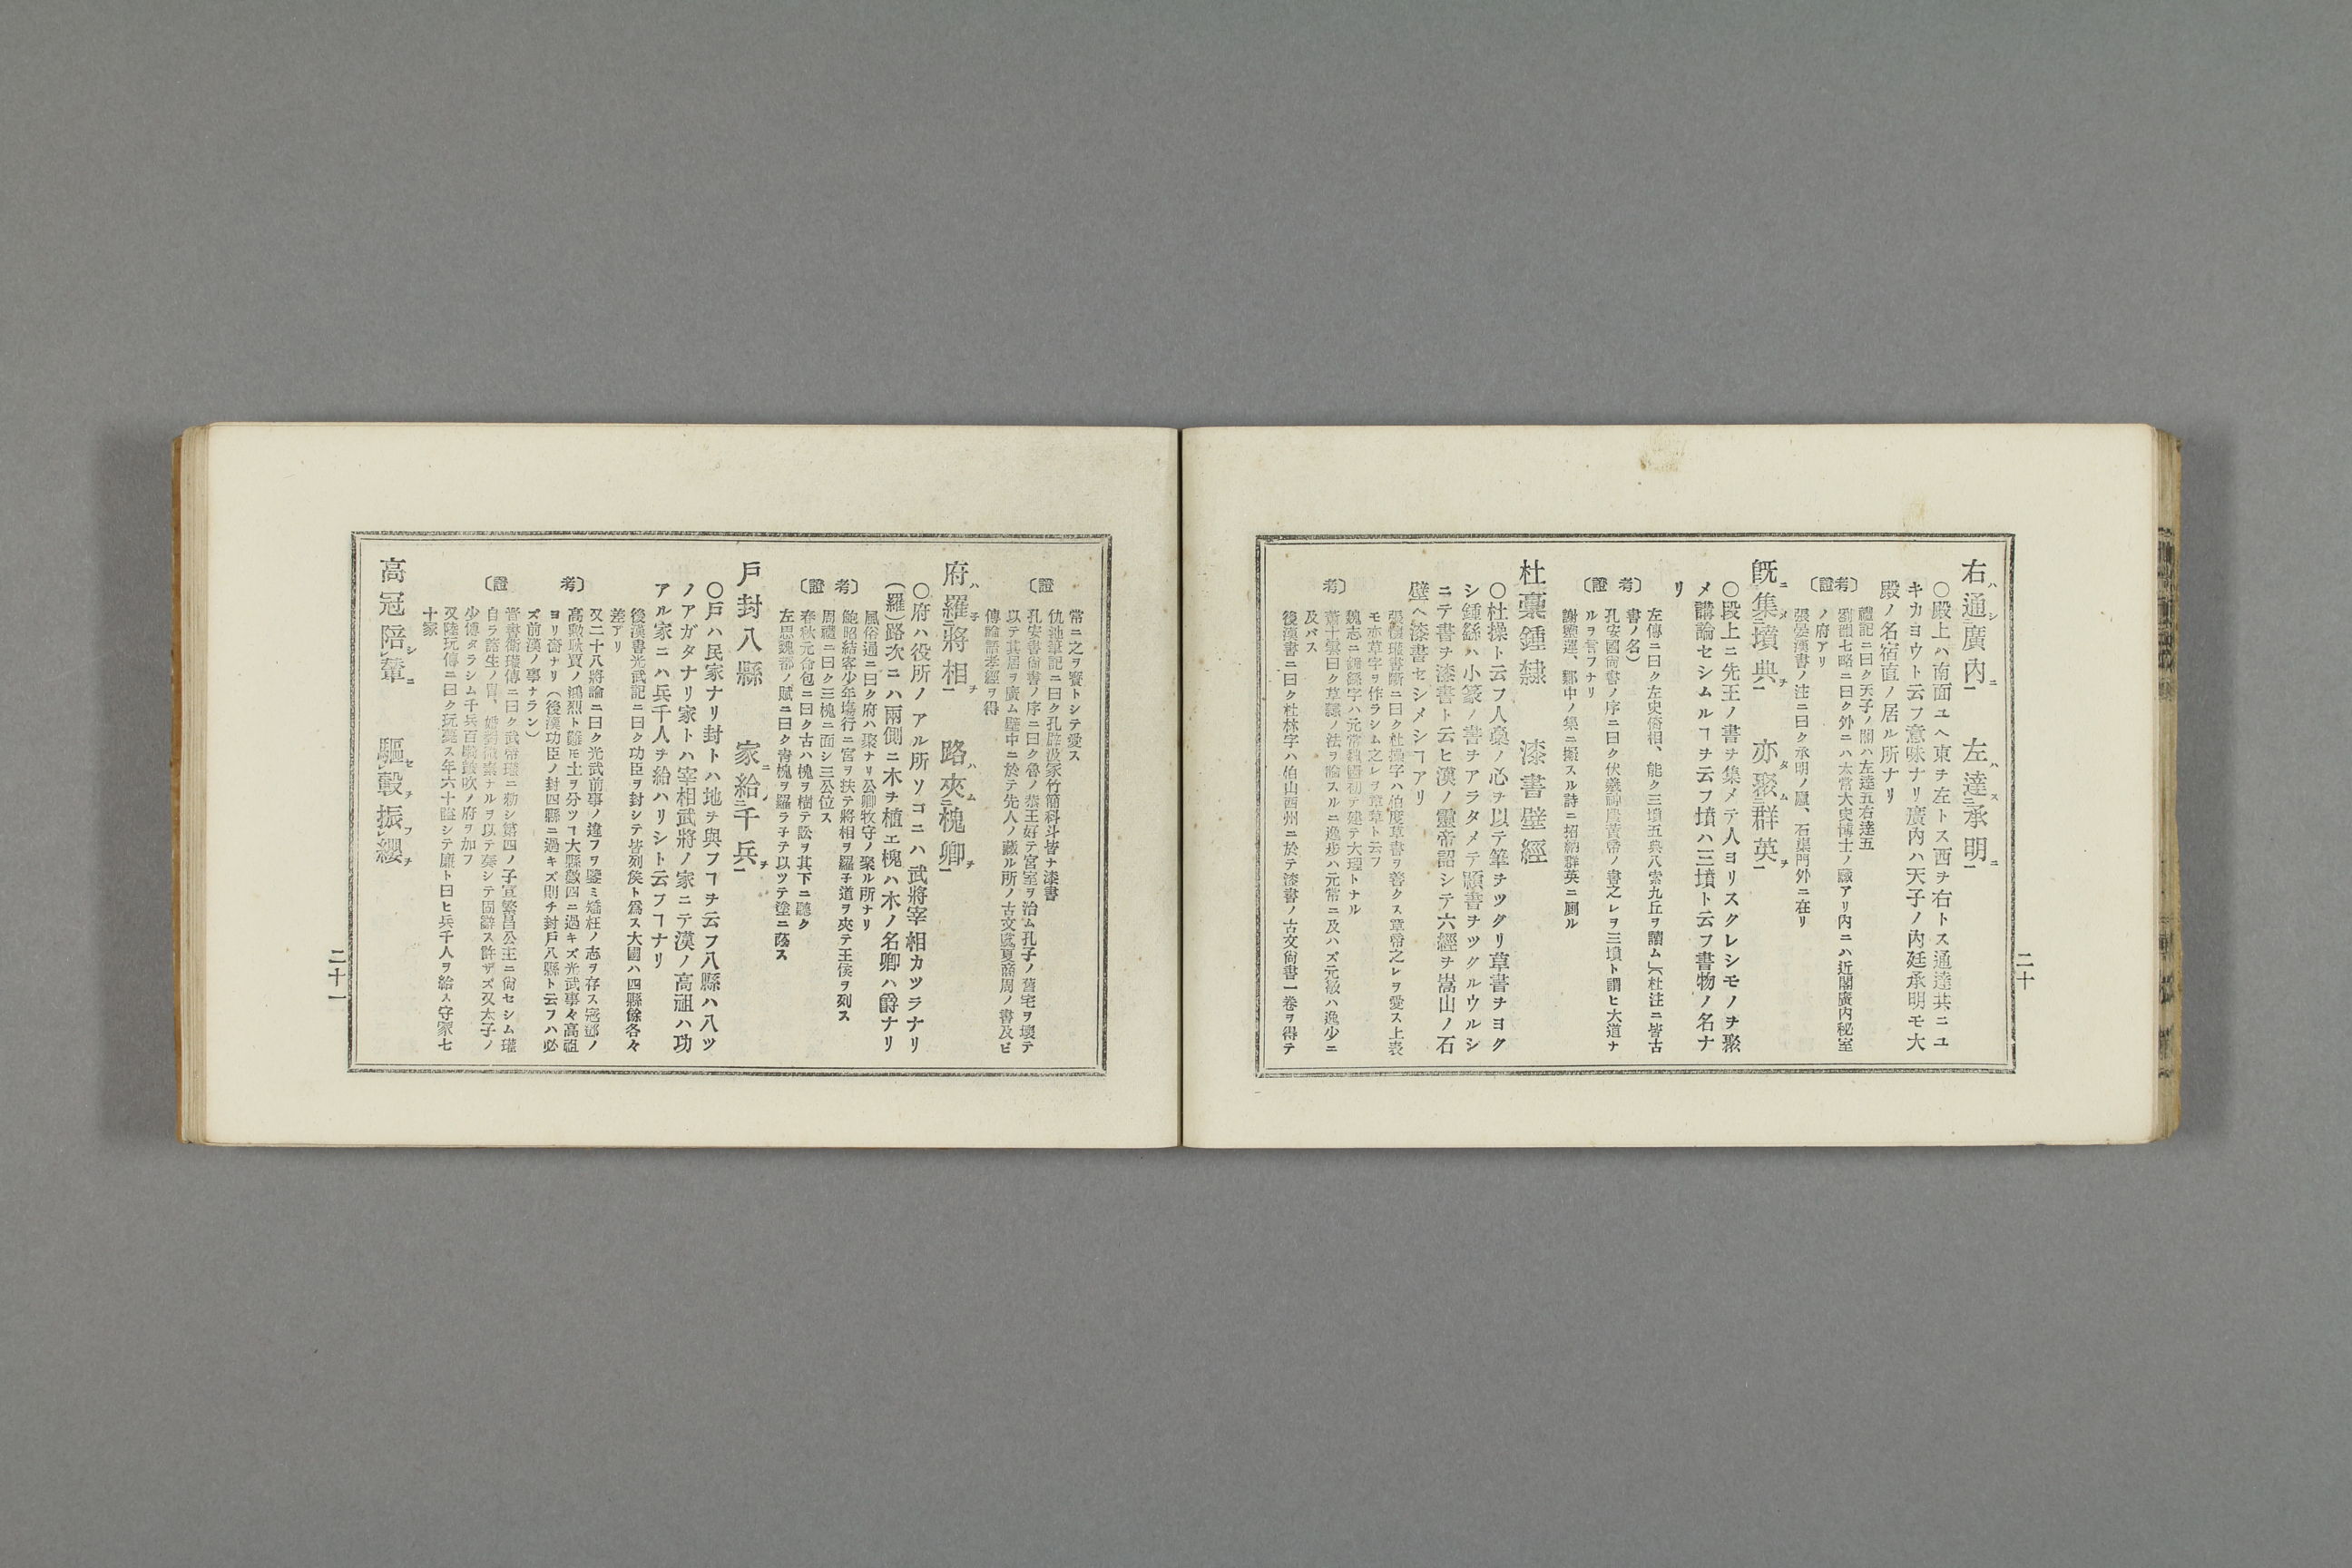 右通廣內 左達承明
〇殿上ハ南面ユヘ東ヲ左トス西ヲ右トス通達共ニユ
キカヨウト云フ意味ナリ廣內ハ天子ノ內廷承明モ大
殿ノ名宿直ノ居ル所ナリ
〔考證〕
禮記ニ曰ク天子ノ閣ハ左達五右達五
劉歆七略ニ曰ク外ニハ太常大史博士ノ藏アリ內ニハ近閣廣內秘室
ノ府アリ
張晏漢書ノ注ニ曰ク承明ノ廬、石渠門外ニ在リ
既集墳典 亦聚群英
〇殿上ニ先王ノ書ヲ集メテ人ヨリスクレシモノヲ聚
メ講論セシムルヿヲ云フ墳ハ三墳ト云フ書物ノ名ナ
リ
〔考證〕
左傳ニ曰ク左史倚相、能ク三墳五典八索九丘ヲ讀ム(杜注ニ皆古
書ノ名)
孔安國尙書ノ序ニ曰ク伏羲神農黃帝ノ書之レヲ三墳ト謂ヒ大道ナ
ルヲ言フナリ
謝靈運、鄴中ノ集ニ擬スル詩ニ招納群英ニ厠ル
杜稾鍾隸 漆書壁經
〇杜操ト云フ人稾ノ心ヲ以テ筆ヲツグリ草書ヲヨク
シ鍾繇ハ小篆ノ書ヲアラタメテ隸書ヲツグルウルシ
ニテ書ヲ漆書ト云ヒ漢ノ靈帝詔シテ六經ヲ嵩山ノ石
壁ヘ漆書セシメシヿアリ
〔考
張懷瓘書斷ニ曰ク杜操字ハ伯度草書ヲ善クス章帝之レヲ愛ス上表
モ亦草字ヲ作ラシム之レヲ章草ト云フ
魏志ニ鍾繇字ハ元常魏國初テ建テ大理トナル
蕭子雲曰ク草隸ノ法ヲ論スルニ逸步ハ元常ニ及ハズ元敏ハ逸少ニ
及バス
後漢書ニ曰ク杜林字ハ伯山西州ニ於テ漆書ノ古文尙書一卷ヲ得テ
二十
常ニ之ヲ寶トシテ愛ス
證〕
仇池筆記ニ曰ク孔壁汲冢竹簡科斗皆ナ漆書
孔安書尙書ノ序ニ曰ク魯ノ恭王好テ宮室ヲ治ム孔子ノ舊宅ヲ壞テ
以テ其居ヲ廣ム壁中ニ於テ先人ノ藏ル所ノ古文虞夏商周ノ書及ビ
傳論語孝經ヲ得
府羅將相 路夾槐卿
〇府ハ役所ノアル所ソコニハ武將宰相カツラナリ
(羅)路次ニハ兩側ニ木ヲ植エ槐ハ木ノ名卿ハ爵ナリ
〔考證〕
風俗通ニ曰ク府ハ聚ナリ公卿牧守ノ聚ル所ナリ
鮑昭結客少年場行ニ宮ヲ扶テ將相ヲ羅子道ヲ夾テ王侯ヲ列ス
周禮ニ曰ク三槐ニ面シ三公位ス
春秋元命包ニ曰ク古ハ槐ヲ樹テ訟ヲ其下ニ聽ク
左思魏都ノ賦ニ曰ク靑槐ヲ羅ラ子テ以ツテ塗ニ蔭ス
戶封八縣 家給千兵
〇戶ハ民家ナリ封トハ地ヲ與フヿヲ云フ八縣ハ八ツ
ノアガタナリ家トハ宰相武將ノ家ニテ漢ノ高祖ハ功
アル家ニハ兵千人ヲ給ハリシト云フヿナリ
〔考證〕
後漢書光武記ニ曰ク功臣ヲ封シテ皆列侯ト爲ス大國ハ四縣餘各々
差アリ
又二十八將論ニ曰ク光武前事ノ違フヲ鑒ミ矯枉ノ志ヲ存ス寇鄧ノ
高勳耿賈ノ鴻烈ト雖𪜈土ヲ分ツヿ大縣數四ニ過キズ光武事々高祖
ヨリ嗇ナリ(後漢功臣ノ封四縣ニ過キズ則チ封戶八縣ト云フハ必
ズ前漢ノ事ナラン)
晉書衛瓘傳ニ曰ク武帝瓘ニ勅シ第四ノ子宣繁昌公主ニ尙セシム瓘
自ラ諸生ノ冑、婚對微素ナルヲ以テ奏シテ固辭ス許サズ又太子ノ
少傅タラシム千兵百騎鼓吹ノ府ヲ加フ
又陸玩傳ニ曰ク玩薨ス年六十謚シテ康ト曰ヒ兵千人ヲ給ス守冢七
十家
高冠陪輦 驅轂振纓
二十一